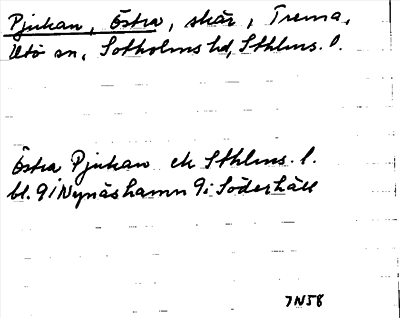 Pjukan, Östra, skär, Trema,
Utö sn, Sotholms hd, Sthlms. l.
Östra Pjukan ek Sthlms. l.
bl. 9 i Nynäshamn 9i Söderhäll
7N58